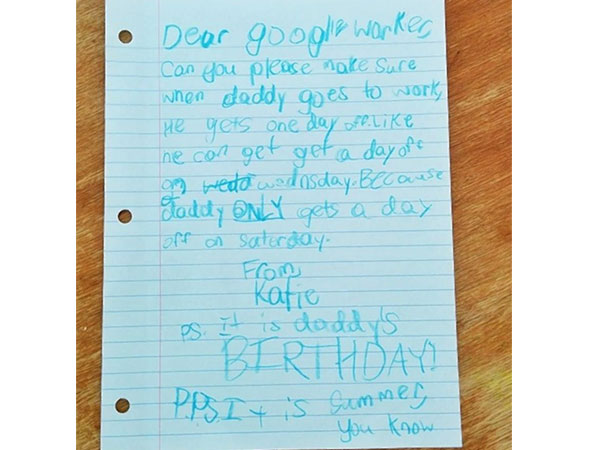 Dear google worker,
Can you please make sure
when daddy goes to work,
He gets one day off. Like
he can get get a day off
on wedd wednsday. Because
daddy ONLY gets a day
off on saterday.
From,
Katie
PS. It is daddy's
BIRTHDAY!
P.P.S. It is Summer,
you know